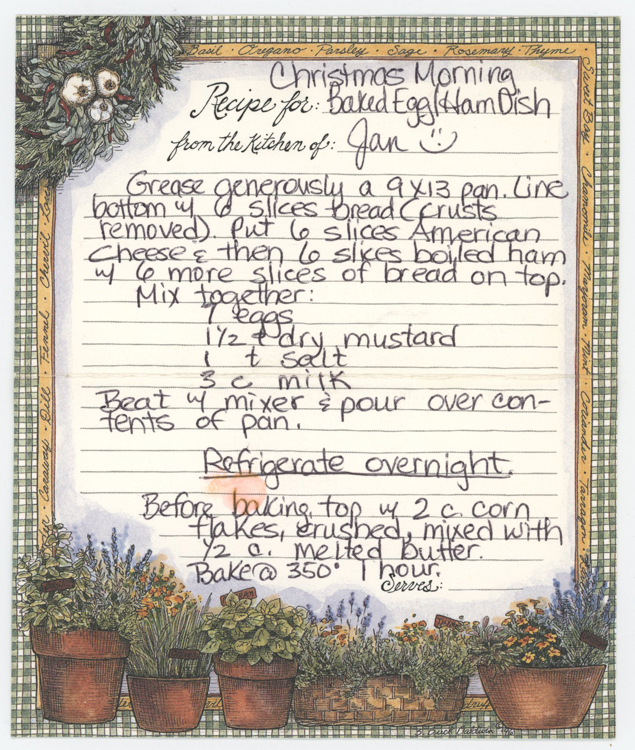 Basil · Oregano · Parsley · Sage · Rosemary · Thyme
Sweet Bay · Chamomile · Marjoram · Mint · Coriander · Tarragon
Caraway · Dill · Fennel · Chervil
Christmas Morning
Recipe for: Baked Egg/Ham Dish
from the Kitchen of: Jan
Grease generously a 9x13 pan. Line
bottom w/ 6 slices bread (crusts
removed). Put 6 slices American
Cheese & then 6 slices boiled ham
w/ 6 more slices of bread on top.
Mix together:
7 eggs
1 1/2 t dry mustard
1 t salt
3 c milk
Beat w/ mixer & pour over con-
tents of pan.
Refrigerate overnight.
Before baking, top w/ 2 c. corn
flakes, crushed, mixed with
1/2 c. melted butter.
Bake @ 350° 1 hour.
Serves: